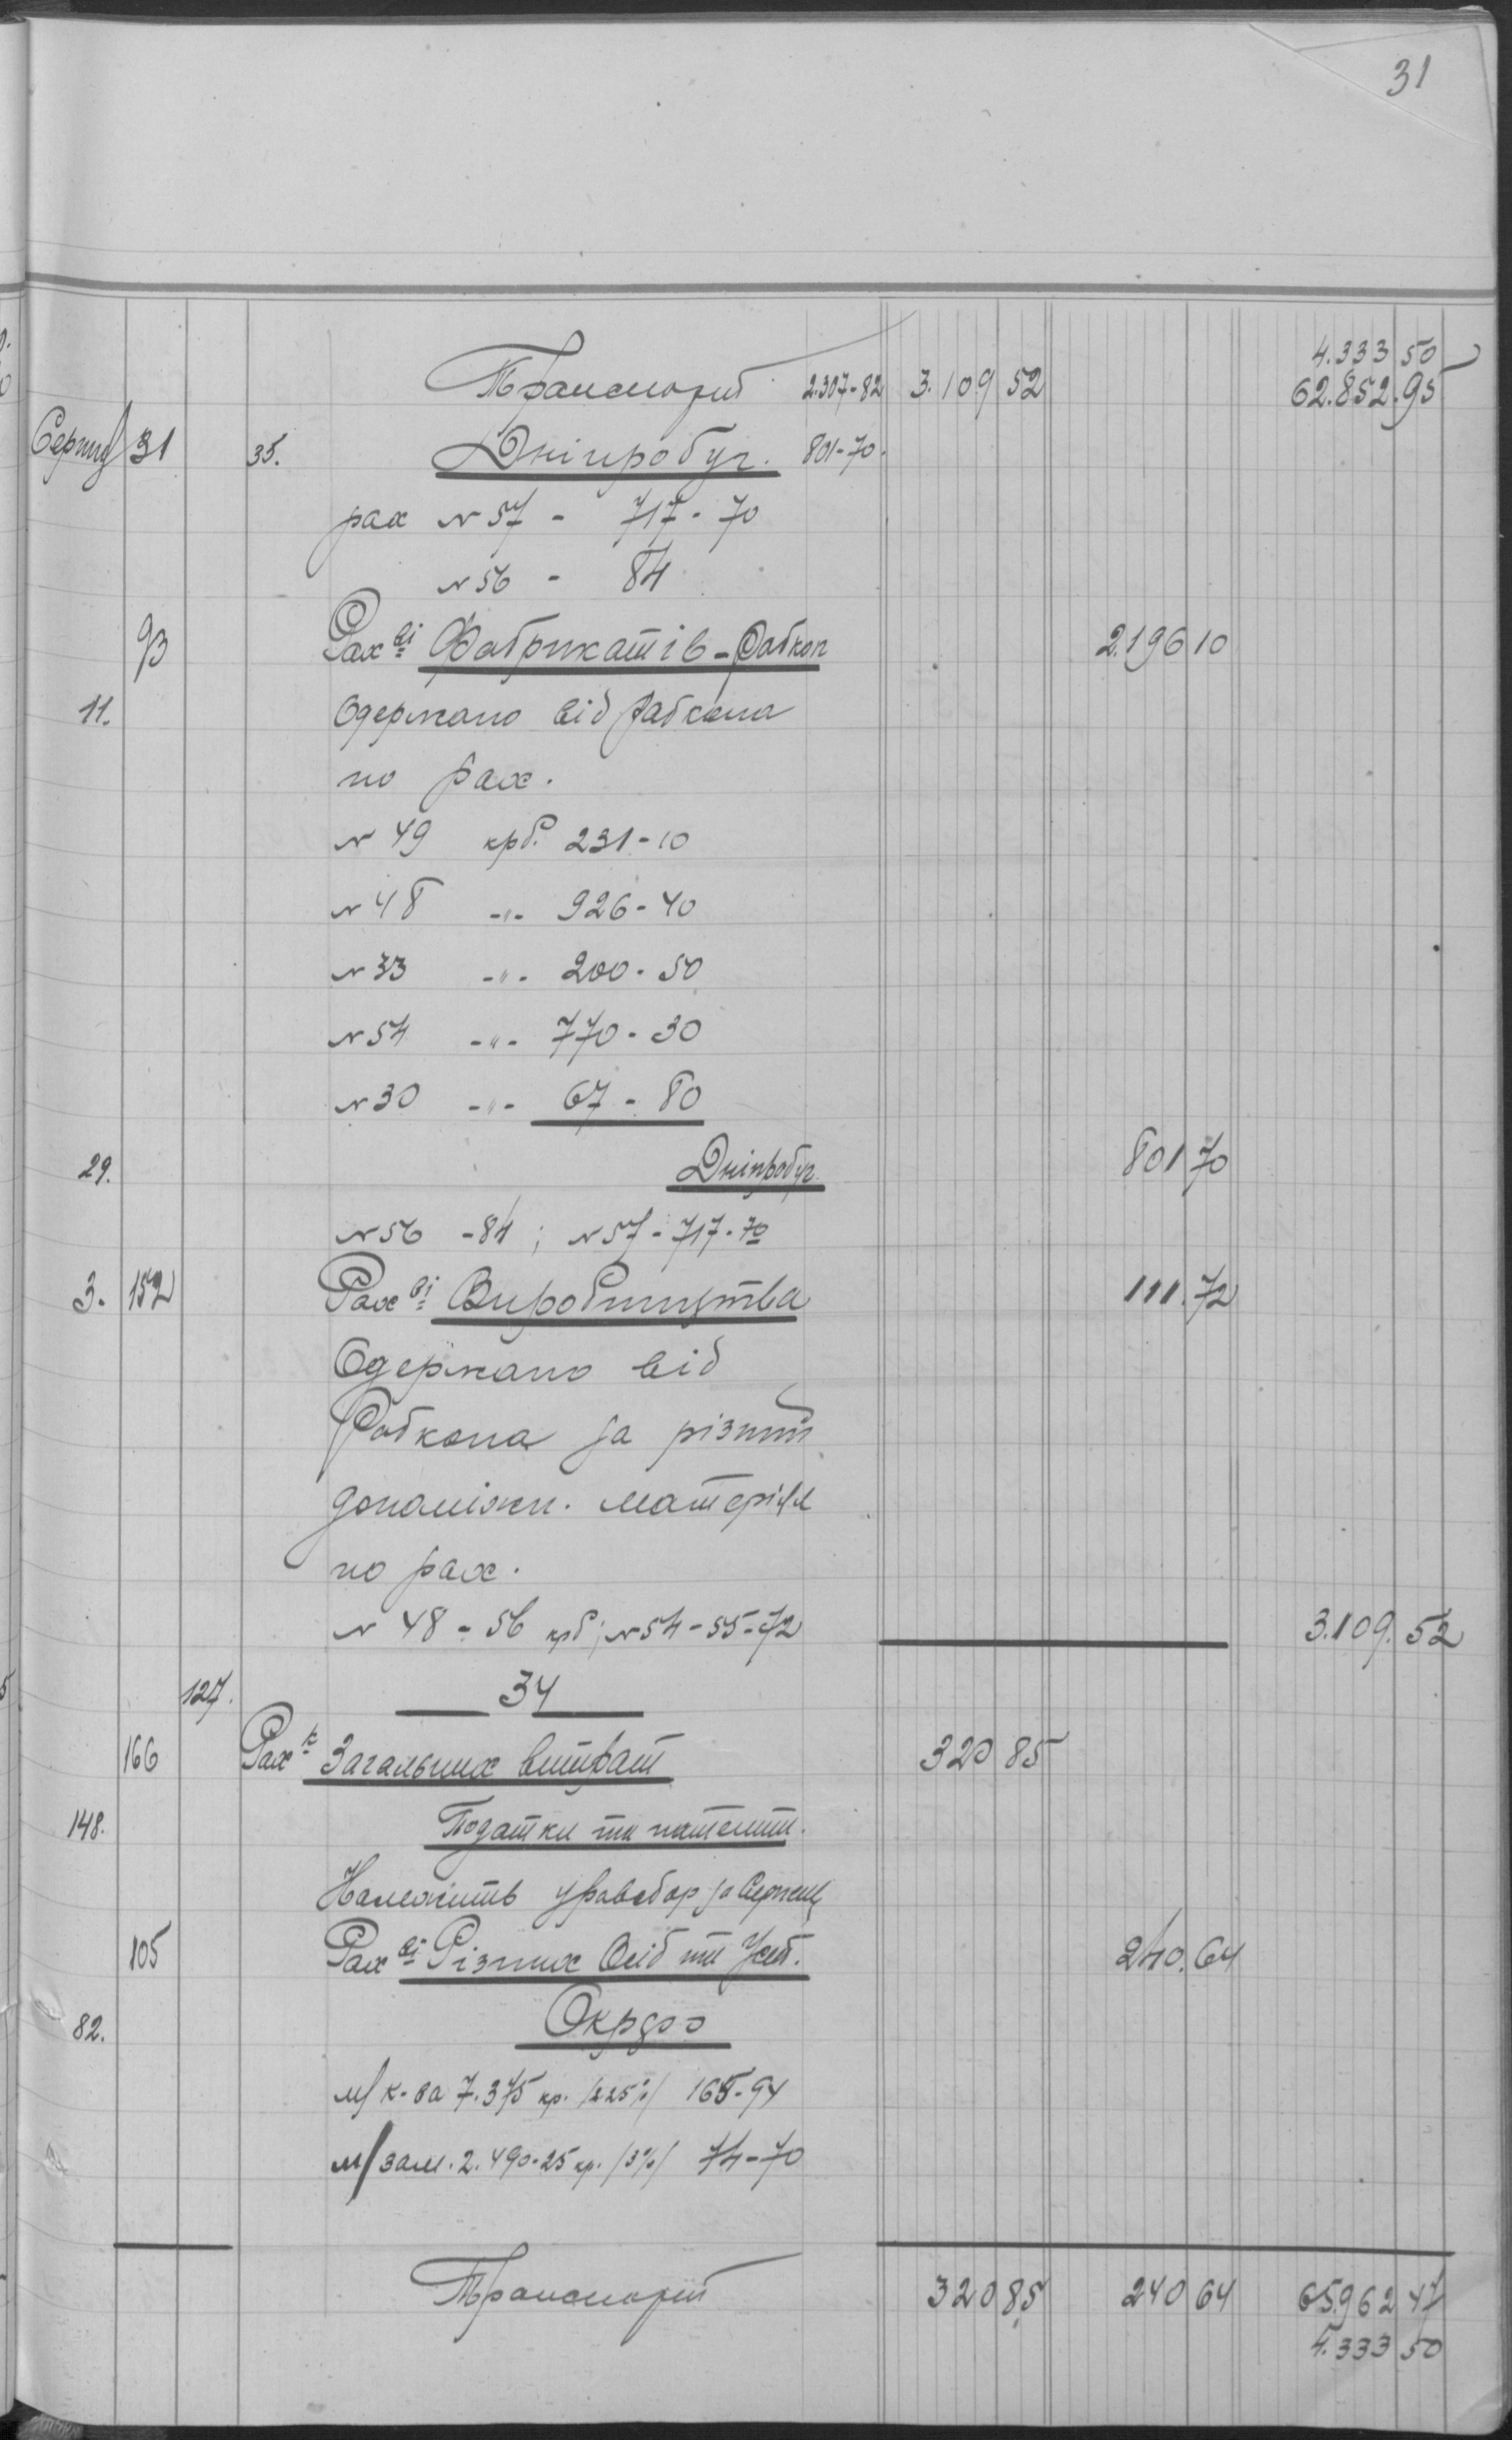 31
4.333 50
Транспорт 2.307-82 3.109 52 62.852.95
Серпня 31 35. Дніпробуг. 801-70.
рах № 57 - 717-70
№ 56 - 84
93 Рах ві Фабрикатів - Рабкоп 2.196 10
11. Одержано від Рабкопа
по рах.
№ 49 крб. 231-10
№ 48 -"- 926-40
№ 33 -"- 200-50
№ 54 -"- 770-30
№ 30 -"- 67-80
29. Дніпробуг 801 70
№ 56 - 84; № 57 - 717-70
3. 152 Рах ві Виробництва 111.72
Одержано від
Рабкопа за різний
допоміжн. матеріял
по рах.
№ 48 - 56 крб; № 54 - 55-72 3.109.52
127. 34
166 Рах к Загальних витрат 320 85
148. Податки та патенти.
Належить за Серпень
105 Рах ві Різних Осіб та Уст. 240.64
82. Окрфо
м/к-ва 7.375 кр. /2 25%/ 165-94
м/зам. 2.490-25 кр. /3%/ 74-70
Транспорт 320 85 240 64 65.962 47
4.333 50